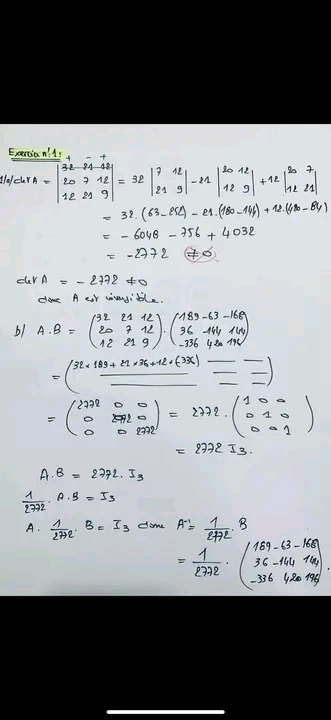 Exercice n°1:
+ - +
1/a/ det A = | 32 21 12 | = 32 | 7 12 | - 21 | 20 12 | + 12 | 20 7 |
| 20 7 12 | | 21 9 | | 12 9 | | 12 21 |
| 12 21 9 |
= 32.(63-252) - 21.(180-144) + 12.(420-84)
= -6048 - 756 + 4032
= -2772 ≠0
det A = - 2772 ≠0
donc A est inversible.
b) A.B = ( 32 21 12 ) . ( 189 -63 -168 )
( 20 7 12 ) ( 36 -144 144 )
( 12 21 9 ) ( -336 420 196 )
= ( 32×189 + 21×36 + 12×(-336) )
= ( 2772 0 0 ) = 2772. ( 1 0 0 )
( 0 2772 0 ) ( 0 1 0 )
( 0 0 2772 ) ( 0 0 1 )
= 2772 I3.
A.B = 2772. I3
1/2772 . A.B = I3
A. 1/2772 . B = I3 donc A⁻¹ = 1/2772 . B
= 1/2772 . ( 189 -63 -168 )
( 36 -144 144 )
( -336 420 196 ) .